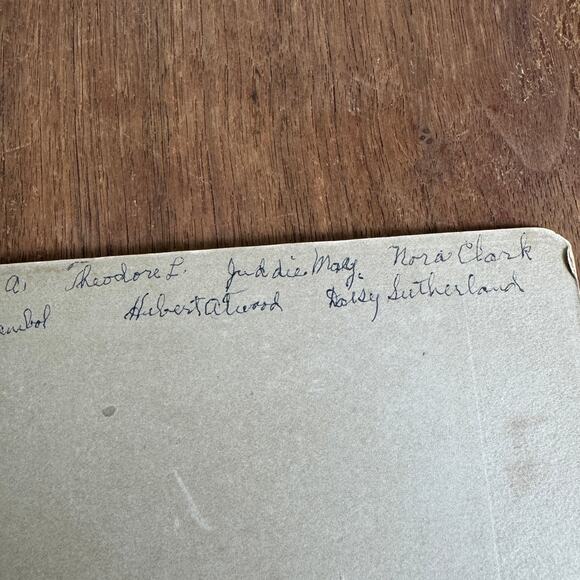 a. Theodore L. Juddie May. Nora Clark
Hubert Atwood Daisy Sutherland